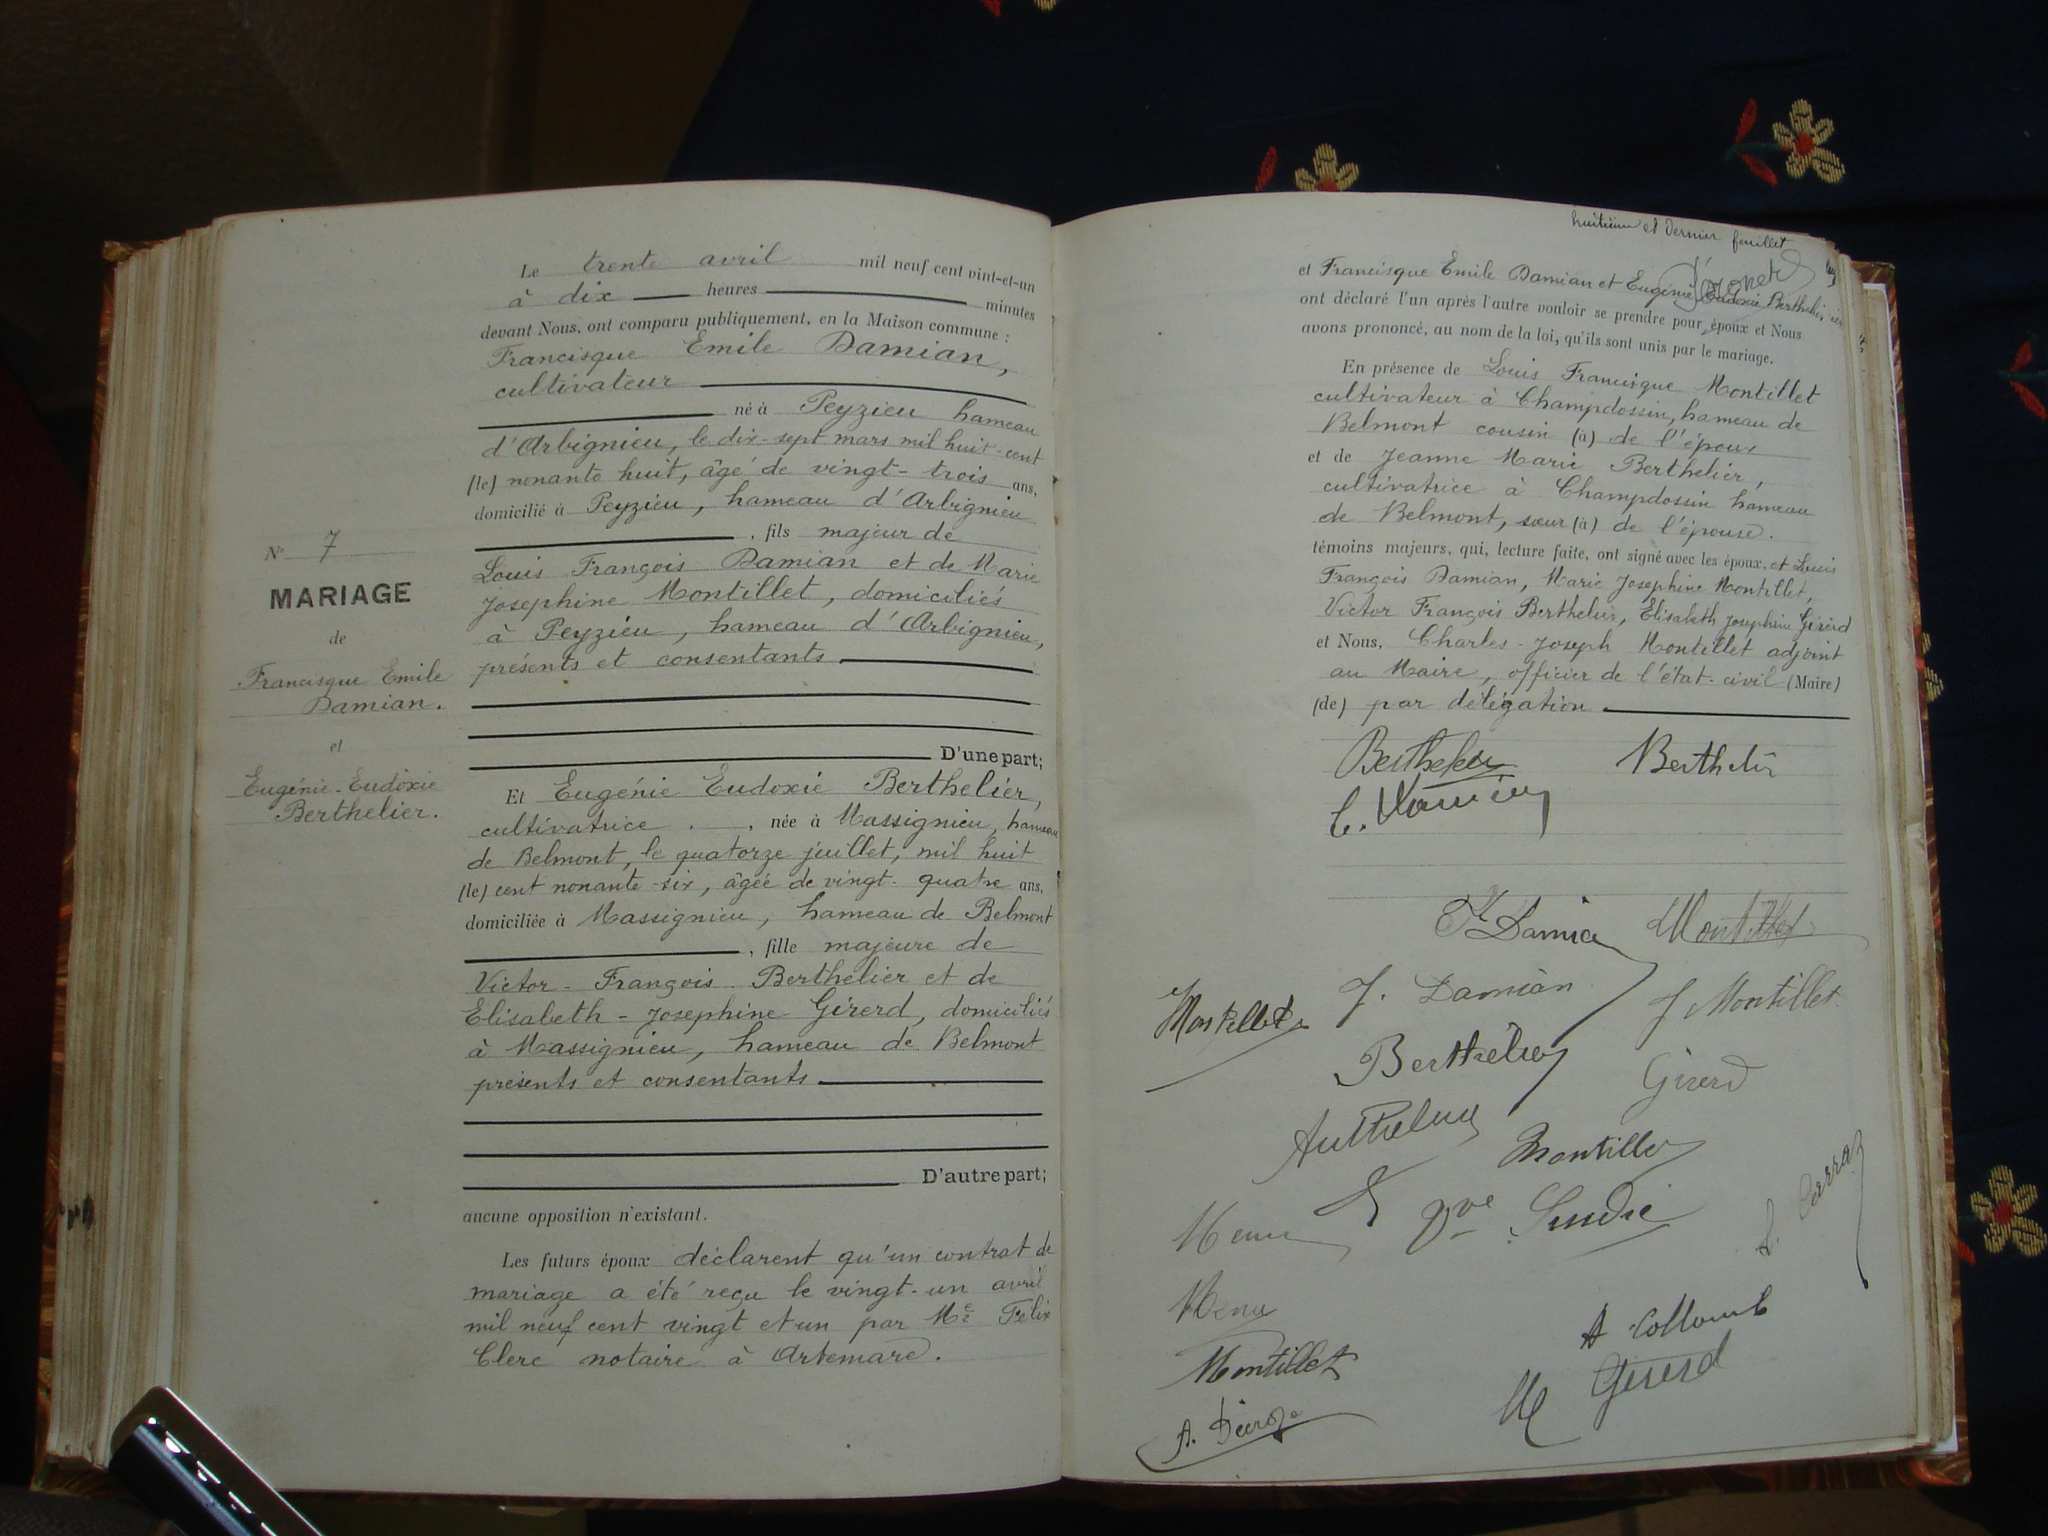 Le trente avril mil neuf cent vint-et-un
à dix heures minutes
devant Nous, ont comparu publiquement, en la Maison commune :
Francisque Emile Damian,
cultivateur
né à Peyzieu hameau
d'Arbignieu, le dix-sept mars mil huit-cent
(le) nonante huit, âgé de vingt-trois ans,
domicilié à Peyzieu, hameau d'Arbignieu
, fils majeur de
Louis François Damian et de Marie
Josephine Montillet, domiciliés
à Peyzieu, hameau d'Arbignieu,
présents et consentants
D'une part;
Et Eugénie Eudoxie Berthelier,
cultivatrice , née à Massignieu, hameau
de Belmont, le quatorze juillet, mil huit
(le) cent nonante-six, âgée de vingt-quatre ans,
domiciliée à Massignieu, hameau de Belmont
, fille majeure de
Victor-François Berthelier et de
Elisabeth-Josephine Girerd, domiciliés
à Massignieu, hameau de Belmont
présents et consentants
D'autre part;
aucune opposition n'existant.
Les futurs époux déclarent qu'un contrat de
mariage a été reçu le vingt-un avril
mil neuf cent vingt et un par Me Felix
Clerc notaire à Artemare.
No 7
MARIAGE
de
Francisque Emile
Damian.
et
Eugénie-Eudoxie
Berthelier.
huitième et dernier feuillet
et Francisque Emile Damian et Eugénie Eudoxie Berthelier
ont déclaré l'un après l'autre vouloir se prendre pour époux et Nous
avons prononcé, au nom de la loi, qu'ils sont unis par le mariage.
En présence de Louis Francisque Montillet
cultivateur à Champdossin, hameau de
Belmont cousin (à) de l'époux
et de Jeanne Marie Berthelier,
cultivatrice à Champdossin hameau
de Belmont, sœur (à) de l'épouse.
témoins majeurs, qui, lecture faite, ont signé avec les époux, et Louis
François Damian, Marie Josephine Montillet,
Victor François Berthelier, Elisabeth Josephine Girerd
et Nous, Charles-Joseph Montillet adjoint
au Maire, officier de l'état-civil (Maire)
(de) par délégation
Berthelier Berthelier
E. Damian
Damian Montillet
Montillet J. Damian J Montillet
Berthelier Girerd
Montillet
Vve
L. Carraz
A Collomb
Montillet
M Girerd